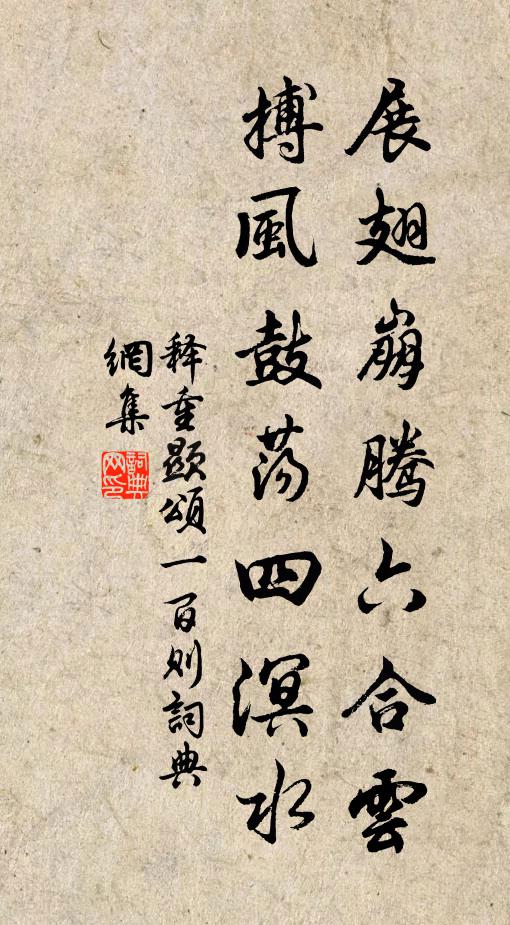 展翅崩騰六合雲
搏風鼓荡四溟水
释重顯頌一百则詞典
網集
詞典
网印